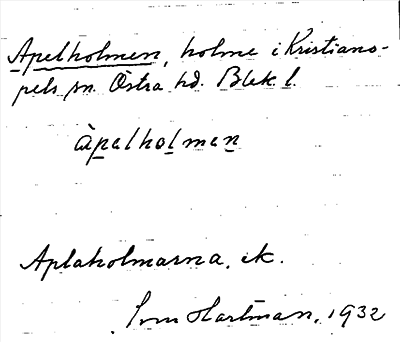 Apelholmen, holme i Kristiano-
pels sn. Östra hd. Blek. l.
àpelholmen
Aplaholmarna, ek.
Hartman, 1932